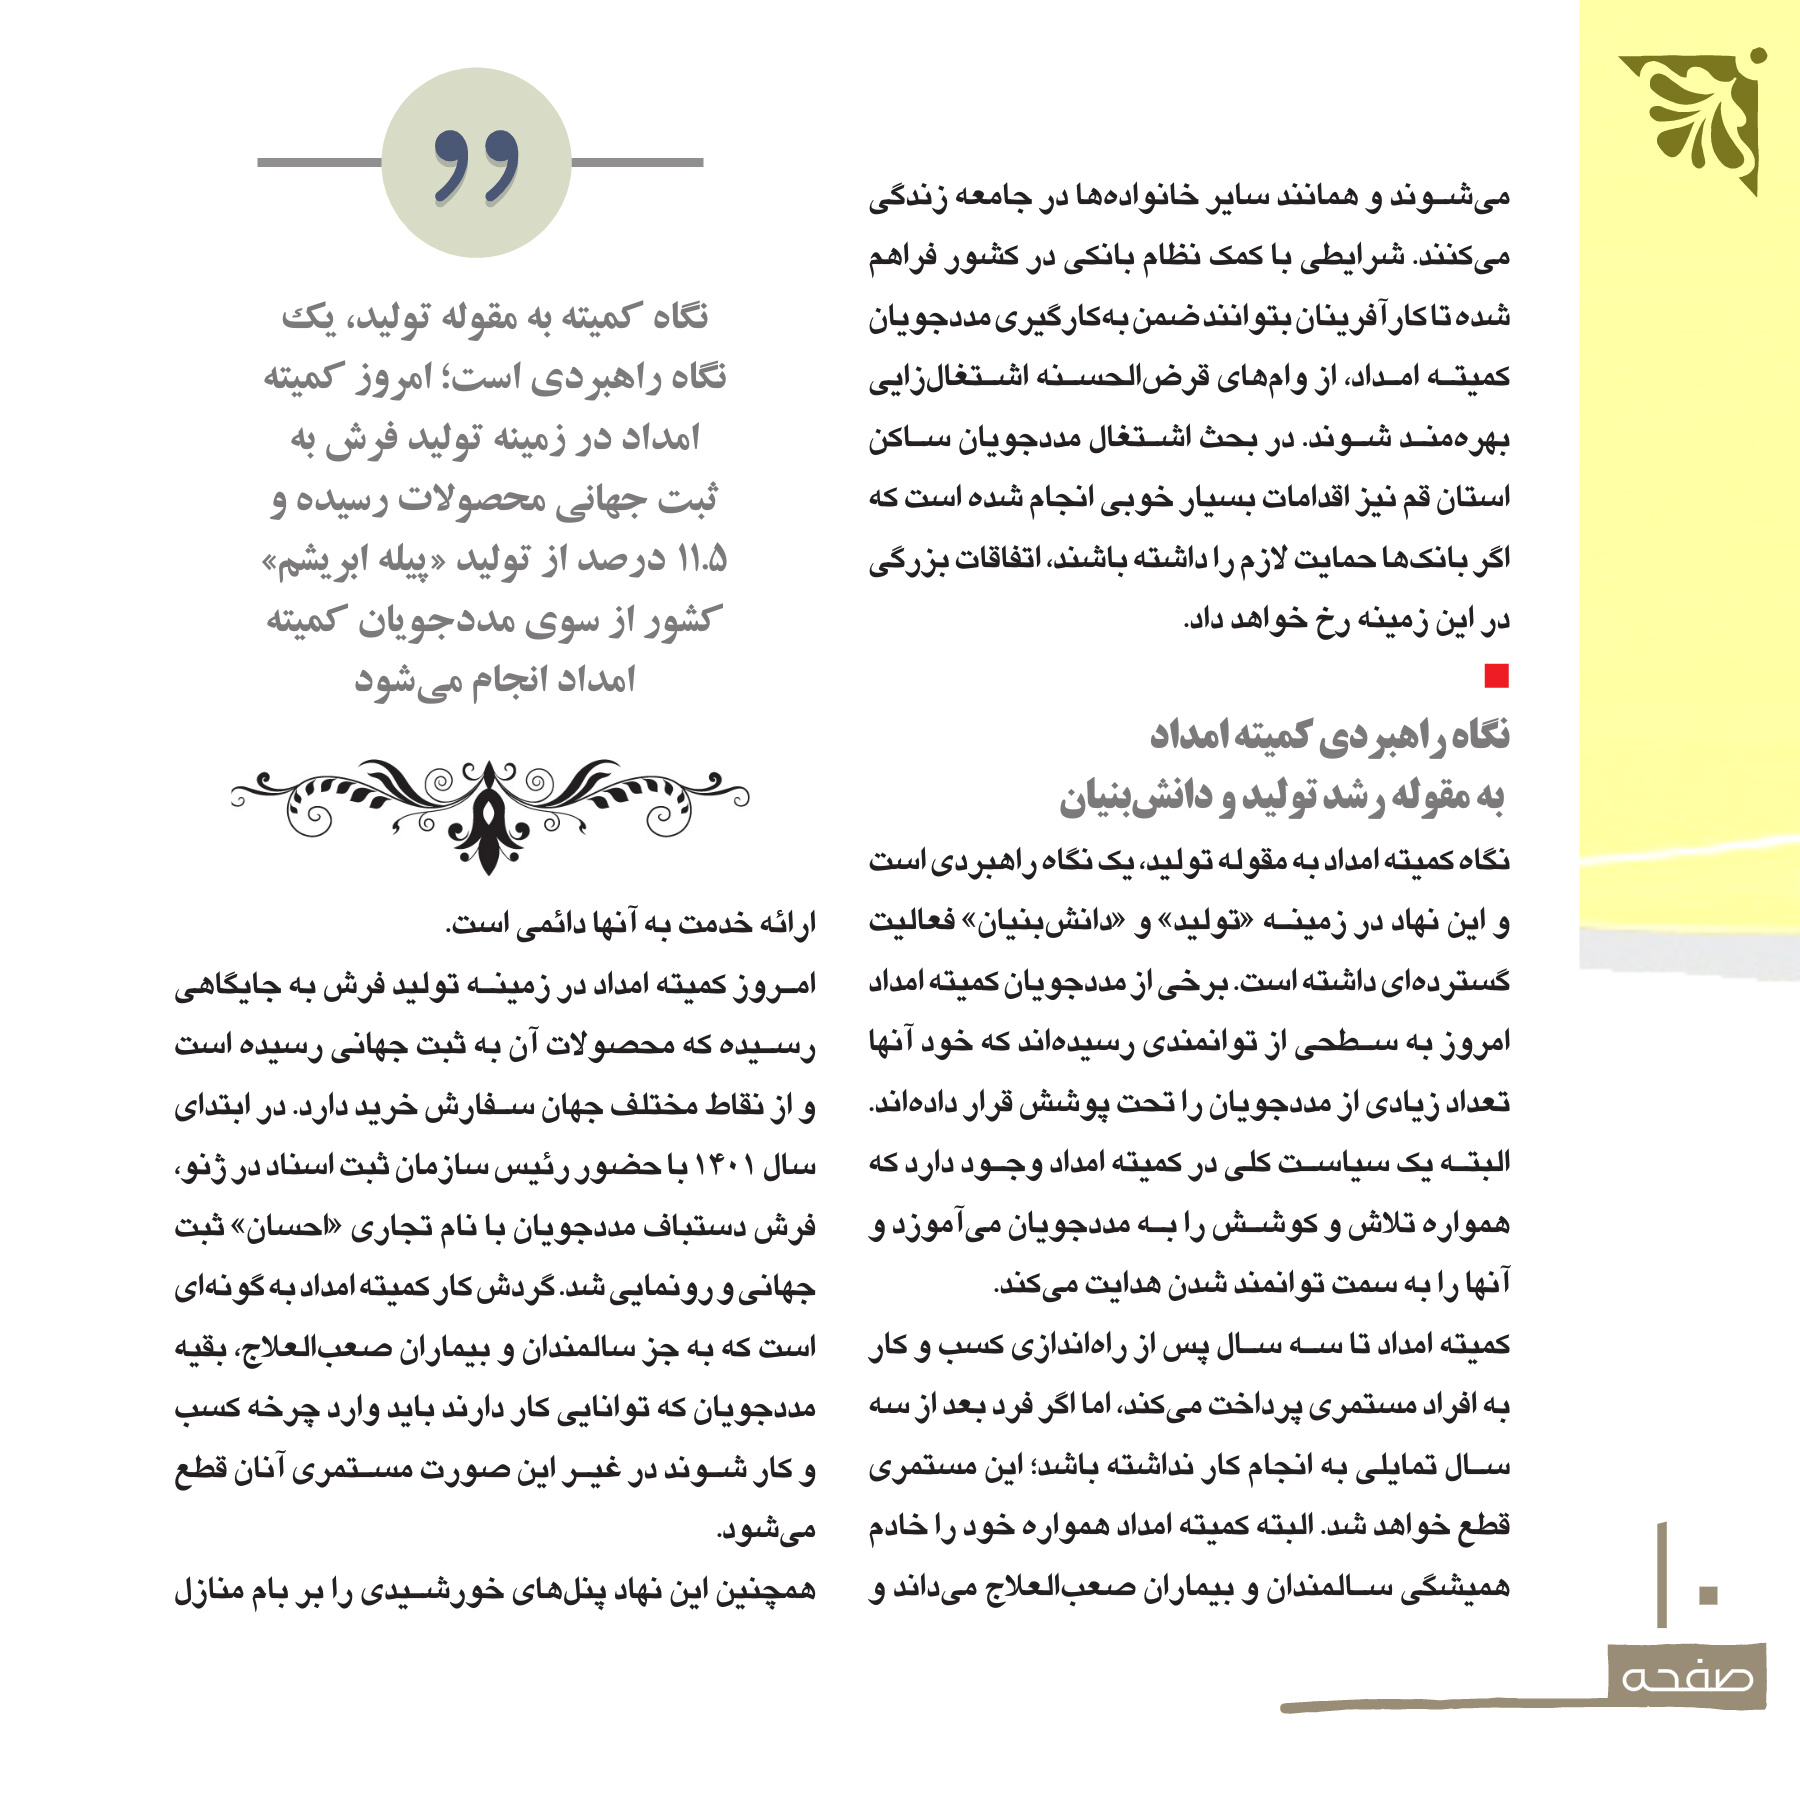 می‌شوند و همانند سایر خانواده‌ها در جامعه زندگی
می‌کنند. شرایطی با کمک نظام بانکی در کشور فراهم
شده تا کارآفرینان بتوانند ضمن به‌کارگیری مددجویان
کمیته امداد، از وام‌های قرض‌الحسنه اشتغال‌زایی
بهره‌مند شوند. در بحث اشتغال مددجویان ساکن
استان قم نیز اقدامات بسیار خوبی انجام شده است که
اگر بانک‌ها حمایت لازم را داشته باشند، اتفاقات بزرگی
در این زمینه رخ خواهد داد.
نگاه راهبردی کمیته امداد
به مقوله رشد تولید و دانش‌بنیان
نگاه کمیته امداد به مقوله تولید، یک نگاه راهبردی است
و این نهاد در زمینه «تولید» و «دانش‌بنیان» فعالیت
گسترده‌ای داشته است. برخی از مددجویان کمیته امداد
امروز به سطحی از توانمندی رسیده‌اند که خود آنها
تعداد زیادی از مددجویان را تحت پوشش قرار داده‌اند.
البته یک سیاست کلی در کمیته امداد وجود دارد که
همواره تلاش و کوشش را به مددجویان می‌آموزد و
آنها را به سمت توانمند شدن هدایت می‌کند.
کمیته امداد تا سه سال پس از راه‌اندازی کسب و کار
به افراد مستمری پرداخت می‌کند، اما اگر فرد بعد از سه
سال تمایلی به انجام کار نداشته باشد؛ این مستمری
قطع خواهد شد. البته کمیته امداد همواره خود را خادم
همیشگی سالمندان و بیماران صعب‌العلاج می‌داند و
نگاه کمیته به مقوله تولید، یک
نگاه راهبردی است؛ امروز کمیته
امداد در زمینه تولید فرش به
ثبت جهانی محصولات رسیده و
۱۱.۵ درصد از تولید «پیله ابریشم»
کشور از سوی مددجویان کمیته
امداد انجام می‌شود
ارائه خدمت به آنها دائمی است.
امروز کمیته امداد در زمینه تولید فرش به جایگاهی
رسیده که محصولات آن به ثبت جهانی رسیده است
و از نقاط مختلف جهان سفارش خرید دارد. در ابتدای
سال ۱۴۰۱ با حضور رئیس سازمان ثبت اسناد در ژنو،
فرش دستباف مددجویان با نام تجاری «احسان» ثبت
جهانی و رونمایی شد. گردش کار کمیته امداد به گونه‌ای
است که به جز سالمندان و بیماران صعب‌العلاج، بقیه
مددجویان که توانایی کار دارند باید وارد چرخه کسب
و کار شوند در غیر این صورت مستمری آنان قطع
می‌شود.
همچنین این نهاد پنل‌های خورشیدی را بر بام منازل
۱۰
صفحه